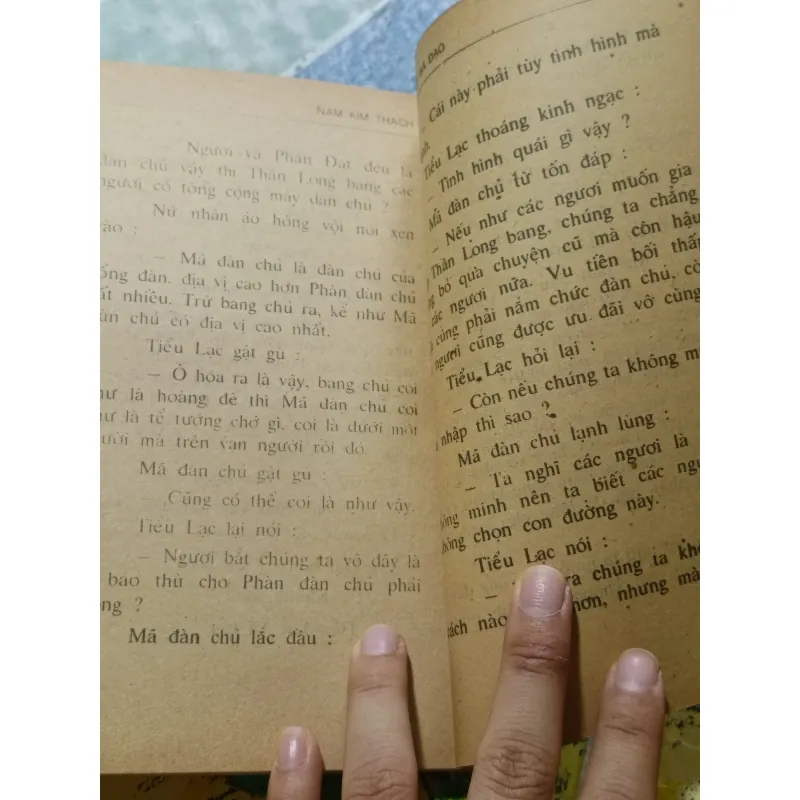 NAM KIM THẠCH
Ngươi và Phàn Đạt đều là
đàn chủ vậy thì Thần Long bang các
ngươi có tổng cộng mấy đàn chủ ?
Nữ nhân áo hồng vội nói xen
vào :
– Mã đàn chủ là đàn chủ của
tổng đàn, địa vị cao hơn Phàn đàn chủ
rất nhiều. Trừ bang chủ ra, kể như Mã
đàn chủ có địa vị cao nhất.
Tiểu Lạc gật gù :
– Ồ hóa ra là vậy, bang chủ coi
như là hoàng đế thì Mã đàn chủ coi
như là tể tướng chớ gì, coi là dưới một
người mà trên vạn người rồi đó.
Mã đàn chủ gật gù :
– Cũng có thể coi là như vậy.
Tiểu Lạc lại nói :
– Ngươi bắt chúng ta vô đây là
bao thù cho Phàn đàn chủ phải
ng ?
Mã đàn chủ lắc đầu :
ĐẠO
– Cái này phải tùy tình hình mà
Tiểu Lạc thoáng kinh ngạc :
– Tình hình quái gì vậy ?
Mã đàn chủ từ tốn đáp :
– Nếu như các ngươi muốn gia
Thần Long bang, chúng ta chẳng
bỏ qua chuyện cũ mà còn hậu
các ngươi nữa. Vu tiên bối thấp
cũng phải nắm chức đàn chủ, cò
ngươi cũng được ưu đãi vô cùng
Tiểu Lạc hỏi lại :
– Còn nếu chúng ta không m
nhập thì sao ?
Mã đàn chủ lạnh lùng :
– Ta nghĩ các ngươi là
thông minh nên ta biết các ngư
không chọn con đường này.
Tiểu Lạc nói :
– ra chúng ta kh
cách nào hơn, nhưng mà